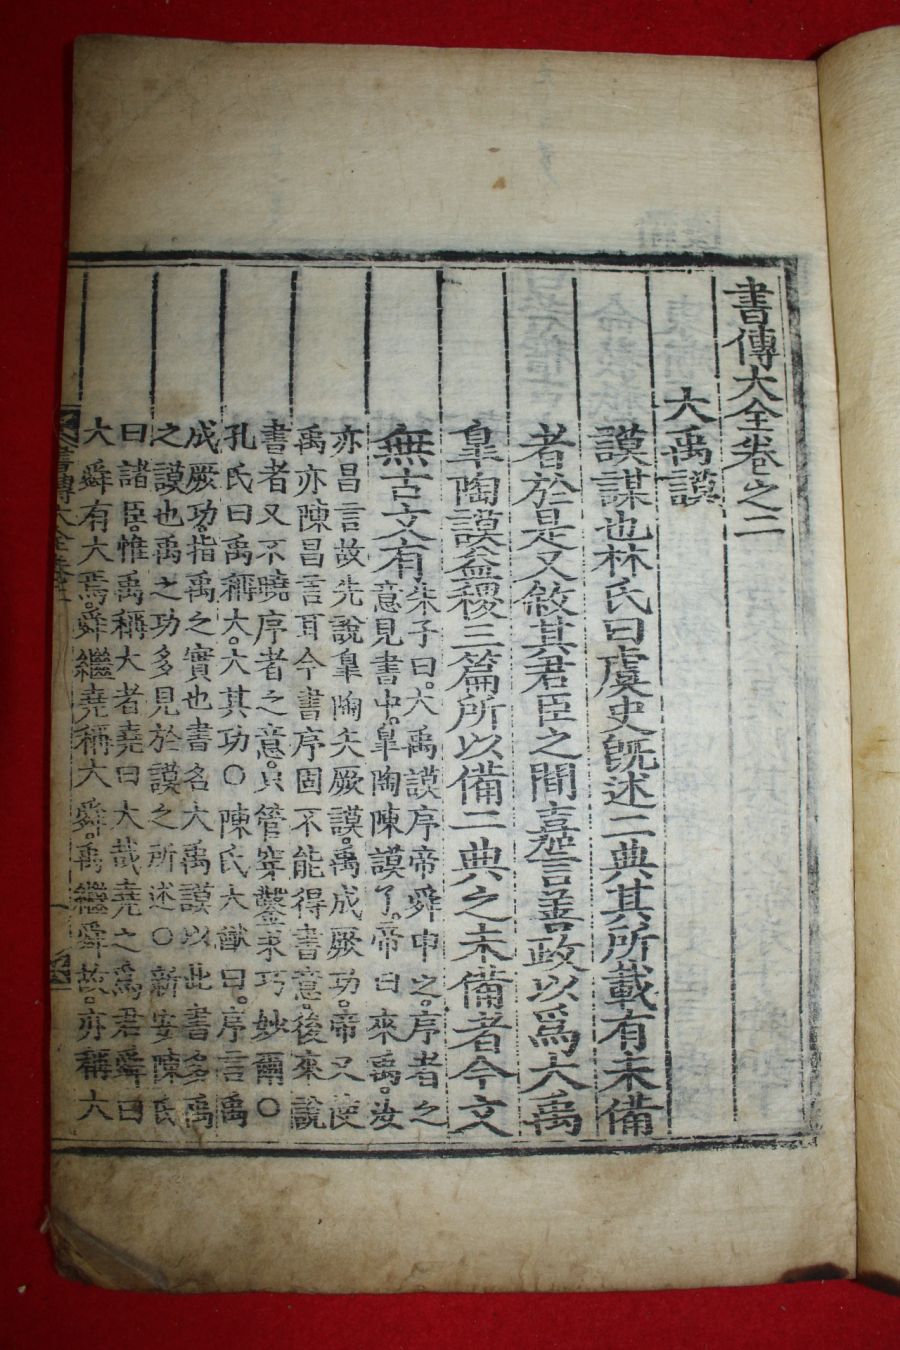 書傳大全卷之二
大禹謨
謨謀也林氏曰虞史旣述二典其所載有未備
者於是又敘其君臣之間嘉言善政以爲大禹
皐陶謨益稷三篇所以備二典之未備者今文
無古文有
朱子曰大禹謨序帝舜申之序者之
意見書中皐陶陳謨了帝曰來禹汝
亦昌言故先說皐陶矢厥謨禹成厥功帝又使
禹亦陳昌言耳今書序固不能得書意後來說
書者又不曉序者之意只管穿鑿求巧妙爾○
孔氏曰禹稱大大其功○陳氏大猷曰序言禹
成厥功指禹之實也書名大禹謨以此書多禹
之謨也禹之功多見於謨之所述○新安陳氏
曰諸臣惟禹稱大者堯曰大哉堯之爲君舜曰
大舜有大焉舜繼堯稱大舜禹繼舜故亦稱大
書傳大全卷二
一